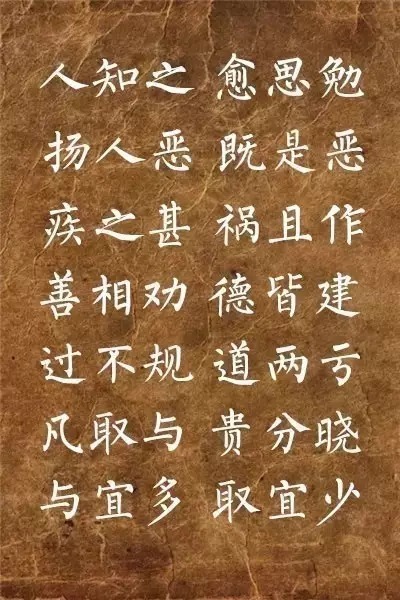 人知之 愈思勉
扬人恶 既是恶
疾之甚 祸且作
善相劝 德皆建
过不规 道两亏
凡取与 贵分晓
与宜多 取宜少